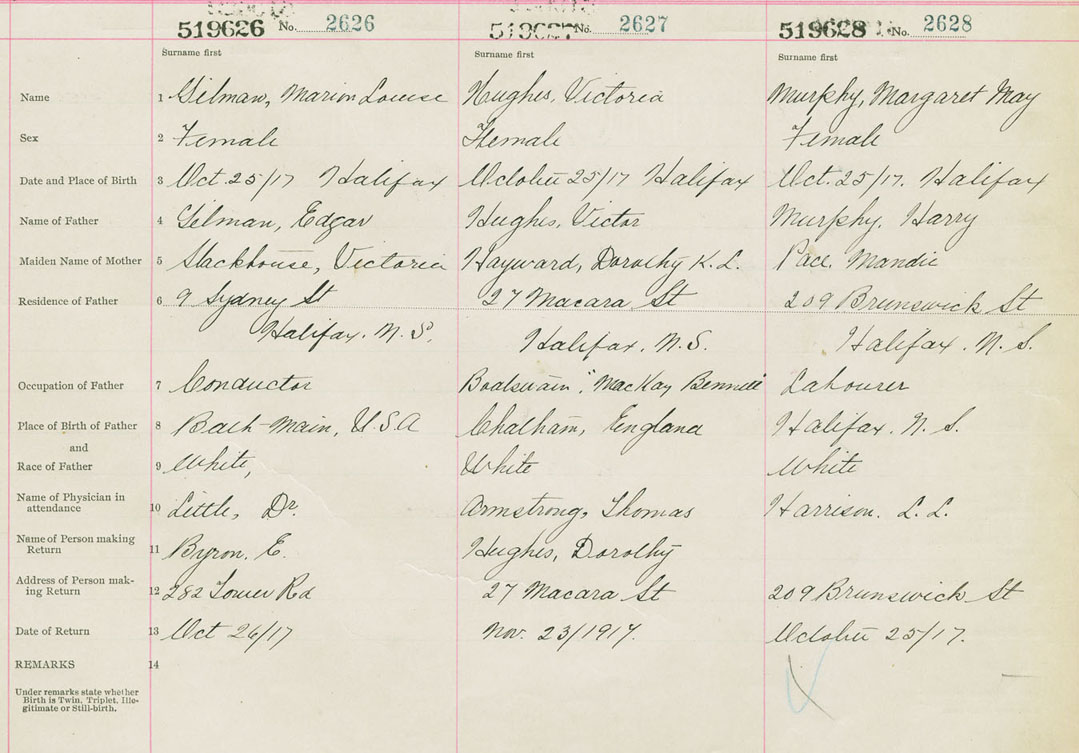 519626 No. 2626 519627 No. 2627 519628 No. 2628
Surname first Surname first Surname first
Name 1 Gilman, Marion Louise Hughes, Victoria Murphy, Margaret May
Sex 2 Female Female Female
Date and Place of Birth 3 Oct. 25/17 Halifax October 25/17 Halifax Oct. 25/17. Halifax
Name of Father 4 Gilman, Edgar Hughes, Victor Murphy, Harry
Maiden Name of Mother 5 Stackhouse, Victoria Hayward, Dorothy K. L. Pace, Mandie
Residence of Father 6 9 Sydney St 27 Macara St 209 Brunswick St
Halifax. N. S. Halifax. N. S. Halifax. N. S.
Occupation of Father 7 Conductor Boatswain "MacKay Bennett Labourer
Place of Birth of Father 8 Bath Main, U.S.A Chatham, England Halifax. N. S.
and
Race of Father 9 White, White White
Name of Physician in
attendance 10 Little, Dr. Armstrong, Thomas Harrison. L. L.
Name of Person making
Return 11 Byron, E. Hughes, Dorothy
Address of Person mak-
ing Return 12 282 Tower Rd 27 Macara St 209 Brunswick St
Date of Return 13 Oct 26/17 Nov. 23/1917. October 25/17.
REMARKS 14
Under remarks state whether
Birth is Twin, Triplet, Ille-
gitimate or Still-birth.